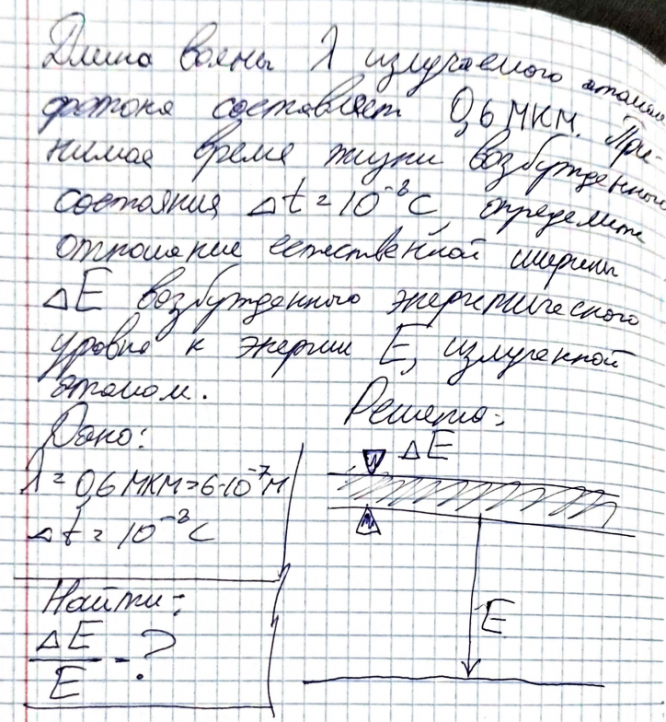 Длина волны λ излучаемого атомом
фотона составляет 0,6 мкм. При-
нимая время жизни возбужденного
состояния Δt = 10⁻⁸ с, определите
отношение естественной ширины
ΔE возбужденного энергетического
уровня к энергии E, излученной
атомом.
Решение:
Дано:
ΔE
λ = 0,6 мкм = 6·10⁻⁷ м
Δt = 10⁻⁸ с
Найти:
E
ΔE/E - ?